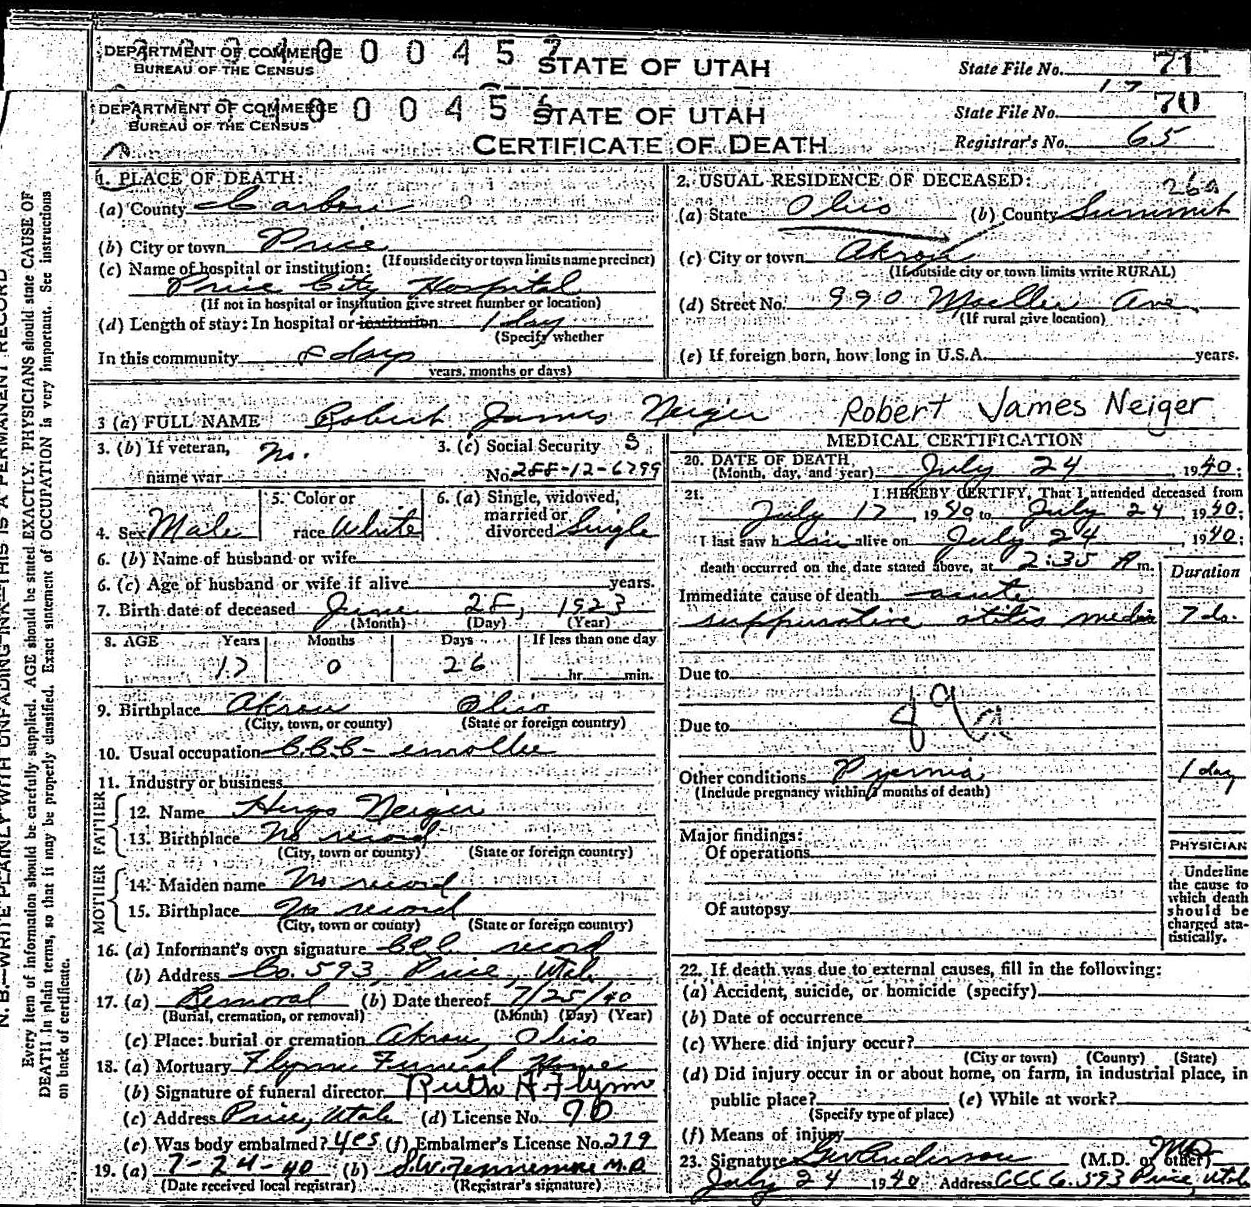 DEPARTMENT OF COMMERCE
BUREAU OF THE CENSUS
STATE OF UTAH
State File No. 71
DEPARTMENT OF COMMERCE
BUREAU OF THE CENSUS
STATE OF UTAH
State File No. 70
CERTIFICATE OF DEATH
Registrar's No. 65
1. PLACE OF DEATH:
(a) County Carbon
(b) City or town Price
(If outside city or town limits name precinct)
(c) Name of hospital or institution:
Price City Hospital
(If not in hospital or institution give street number or location)
(d) Length of stay: In hospital or institution 1 day
(Specify whether
In this community 8 days
years, months or days)
2. USUAL RESIDENCE OF DECEASED:
26a
(a) State Ohio (b) County Summit
(c) City or town Akron
(If outside city or town limits write RURAL)
(d) Street No. 990 Moeller Ave.
(If rural give location)
(e) If foreign born, how long in U.S.A. years.
3 (a) FULL NAME Robert James Neiger Robert James Neiger
3. (b) If veteran, name war No.
3. (c) Social Security
No. 288-12-6799
4. Sex Male
5. Color or race White
6. (a) Single, widowed, married or divorced Single
6. (b) Name of husband or wife
6. (c) Age of husband or wife if alive years.
7. Birth date of deceased June 28, 1923
(Month) (Day) (Year)
8. AGE Years Months Days If less than one day
17 0 26 hr. min.
9. Birthplace Akron Ohio
(City, town, or county) (State or foreign country)
10. Usual occupation C.C.C. - enrollee
11. Industry or business
FATHER
12. Name Hugo Neiger
13. Birthplace No record
(City, town or county) (State or foreign country)
MOTHER
14. Maiden name No record
15. Birthplace No record
(City, town or county) (State or foreign country)
16. (a) Informant's own signature CCC record
(b) Address Co. 593, Price, Utah
17. (a) Removal (b) Date thereof 7/25/40
(Burial, cremation, or removal) (Month) (Day) (Year)
(c) Place: burial or cremation Akron, Ohio
18. (a) Mortuary Flynn Funeral Home
(b) Signature of funeral director Ruth H Flynn
(c) Address Price, Utah (d) License No. 90
(e) Was body embalmed? yes (f) Embalmer's License No. 279
19. (a) 7-24-40 (b) M.D.
(Date received local registrar) (Registrar's signature)
MEDICAL CERTIFICATION
20. DATE OF DEATH
(Month, day, and year) July 24 1940;
21. I HEREBY CERTIFY, That I attended deceased from
July 17 1940 to July 24 1940;
I last saw him alive on July 24 1940;
death occurred on the date stated above, at 2:35 A m.
Duration
Immediate cause of death acute
suppurative otitis media 7 ds.
Due to
Due to
89a
Other conditions Pyemia 1 day
(Include pregnancy within 3 months of death)
Major findings:
Of operations
Of autopsy
PHYSICIAN
Underline
the cause to
which death
should be
charged sta-
tistically.
22. If death was due to external causes, fill in the following:
(a) Accident, suicide, or homicide (specify)
(b) Date of occurrence
(c) Where did injury occur?
(City or town) (County) (State)
(d) Did injury occur in or about home, on farm, in industrial place, in
public place? (e) While at work?
(Specify type of place)
(f) Means of injury
23. Signature Anderson (M.D. or other) MD
July 24 1940 Address CCC Co. 593 Price, Utah
N. B.—WRITE PLAINLY WITH UNFADING INK—THIS IS A PERMANENT RECORD
Every item of information should be carefully supplied. AGE should be stated EXACTLY. PHYSICIANS should state CAUSE OF
DEATH in plain terms, so that it may be properly classified. Exact statement of OCCUPATION is very important. See instructions
on back of certificate.